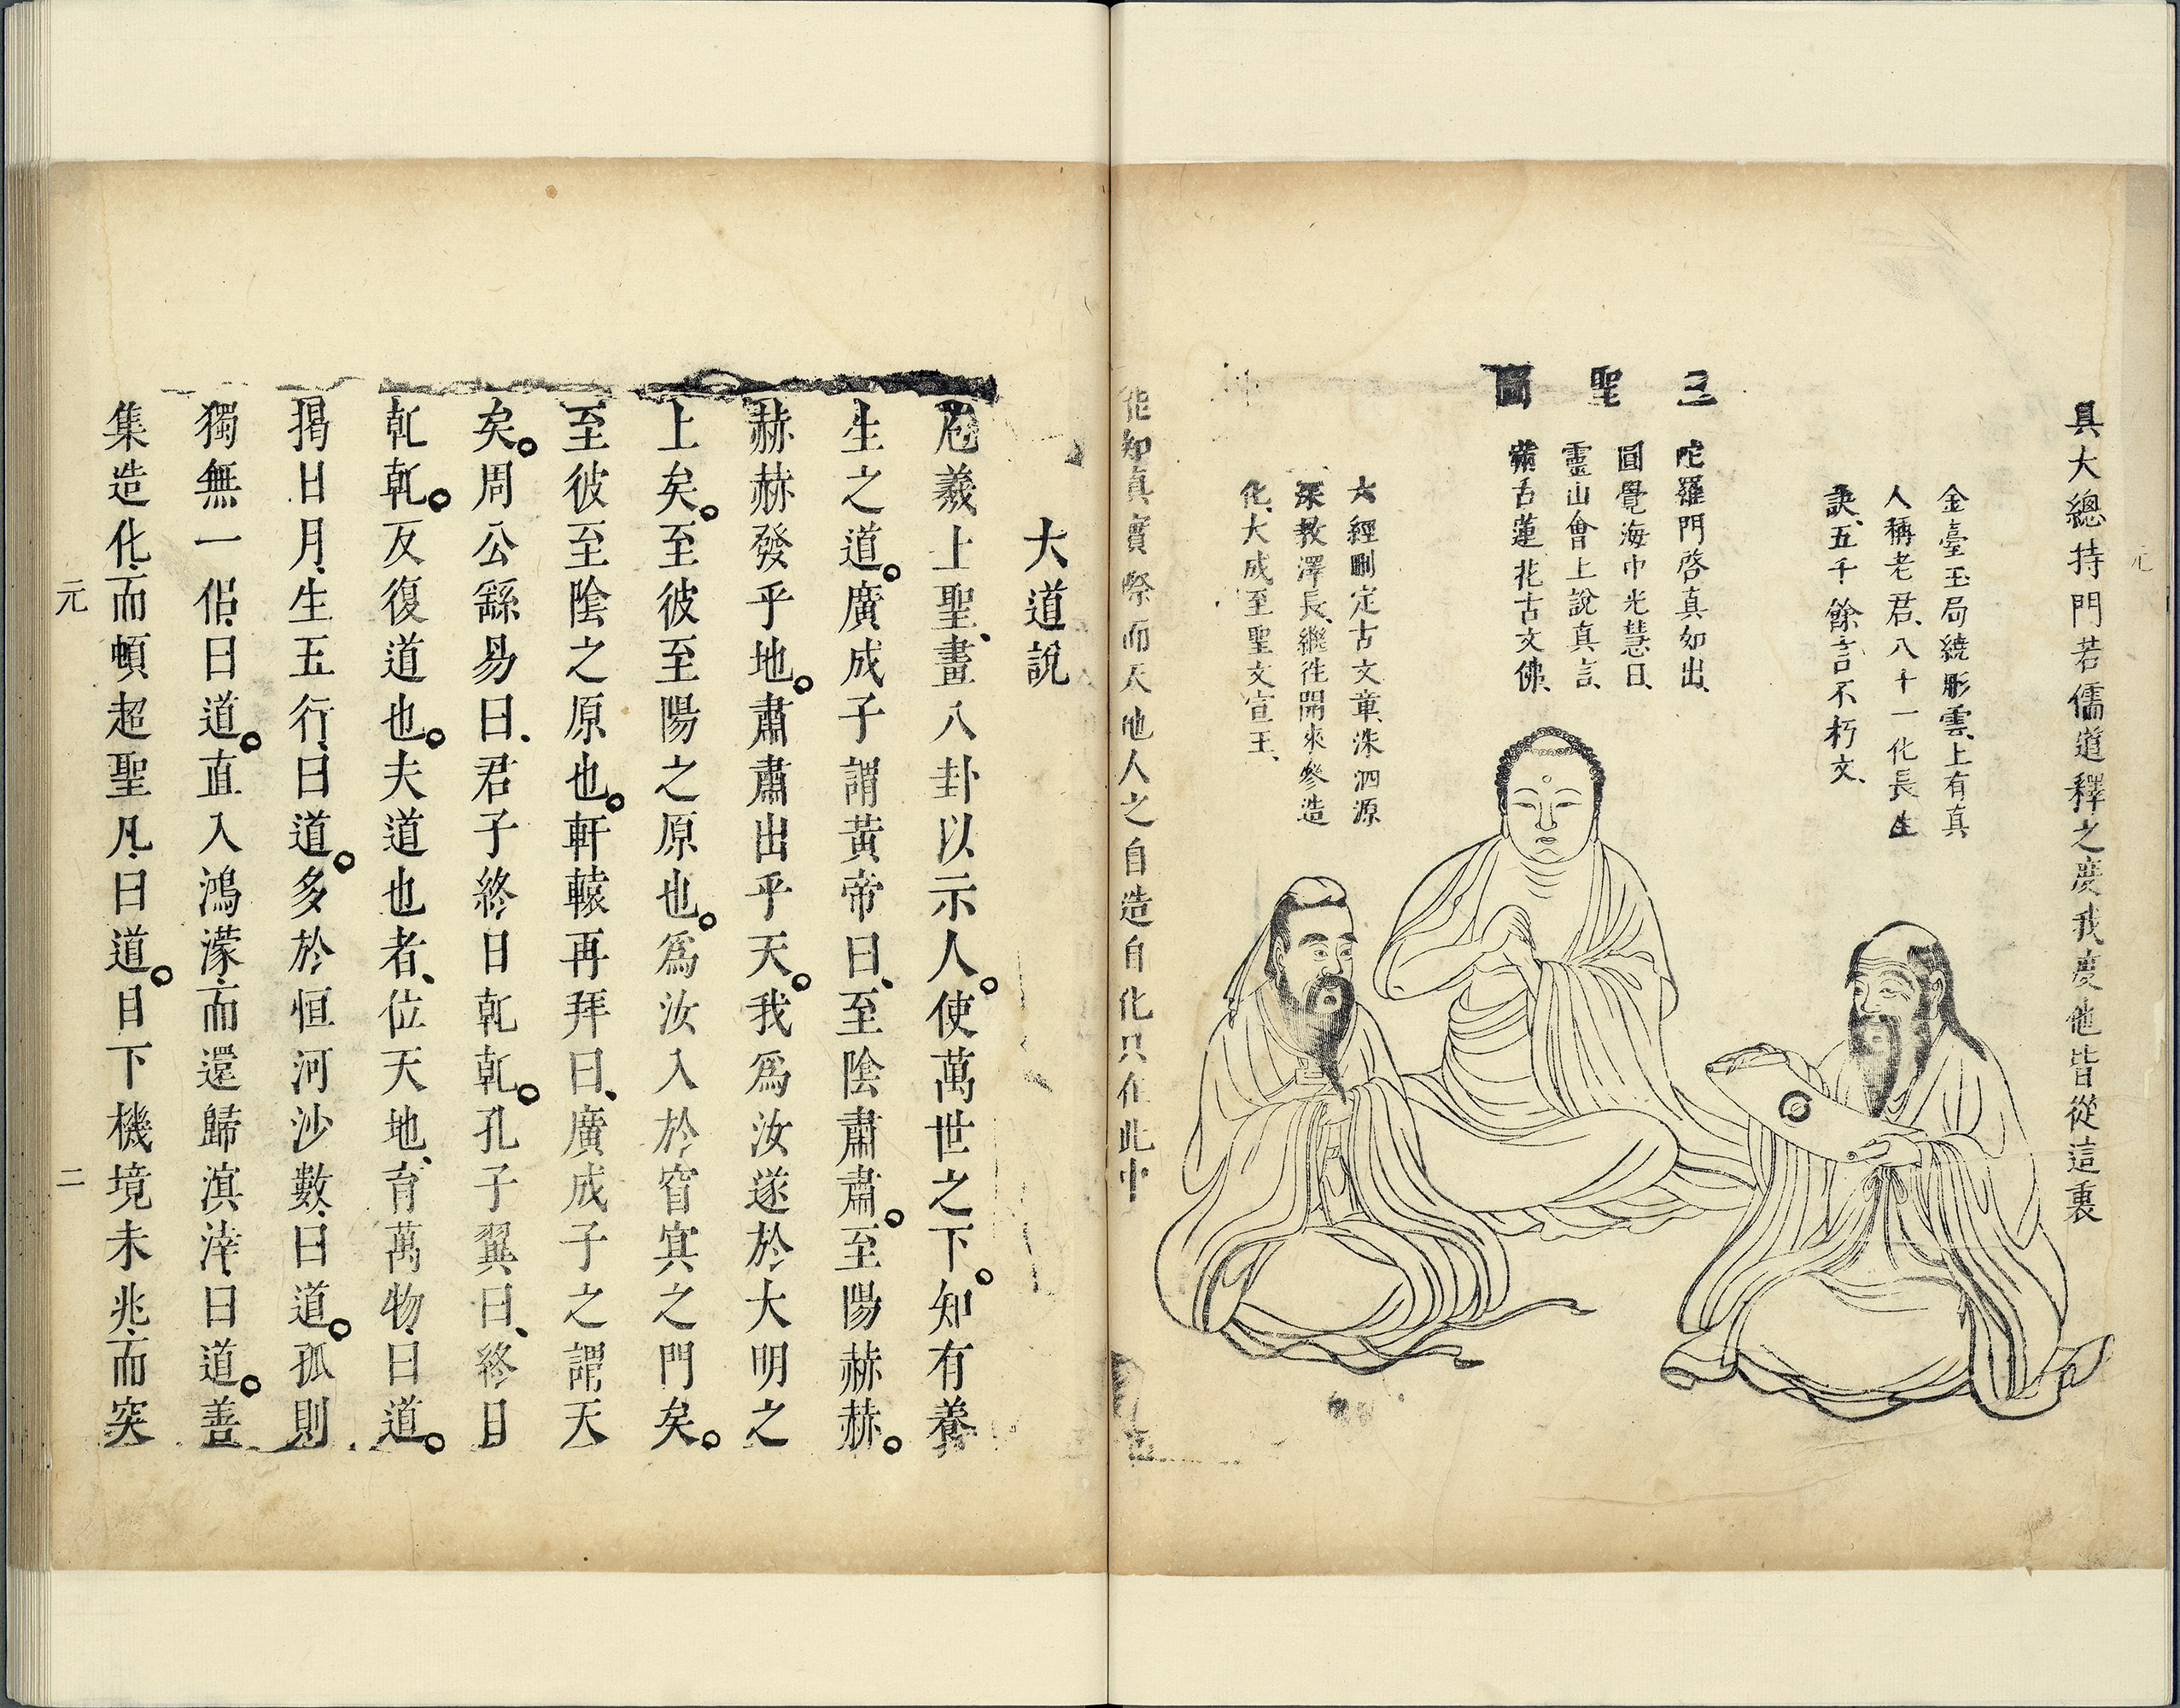 具大總持門若儒道釋之慶我慶他皆從這裏
三聖圖
金臺玉局繞彤雲、上有真
人稱老君、八十一化長生
訣、五千餘言不朽文、
陀羅門啓真如出、
圓覺海中光慧日、
靈山會上說真言、
滿舌蓮花古文佛、
六經刪定古文章、洙泗源
深教澤長、繼往開來參造
化、大成至聖文宣王、
能知真實際而天地人之自造自化只在此中
大道說
庖羲上聖、畫八卦以示人。使萬世之下。知有養
生之道。廣成子謂黃帝曰、至陰肅肅。至陽赫赫。
赫赫發乎地。肅肅出乎天。我爲汝遂於大明之
上矣。至彼至陽之原也。爲汝入於窅冥之門矣。
至彼至陰之原也。軒轅再拜曰、廣成子之謂天
矣。周公繇易曰、君子終日乾乾。孔子翼曰、終日
乾乾。反復道也。夫道也者、位天地、育萬物、曰道。
揭日月、生五行、曰道。多於恒河沙數、曰道。孤則
獨無一侶、曰道。直入鴻濛、而還歸溟涬、曰道。善
集造化、而頓超聖凡、曰道。目下機境未兆、而突
元
二